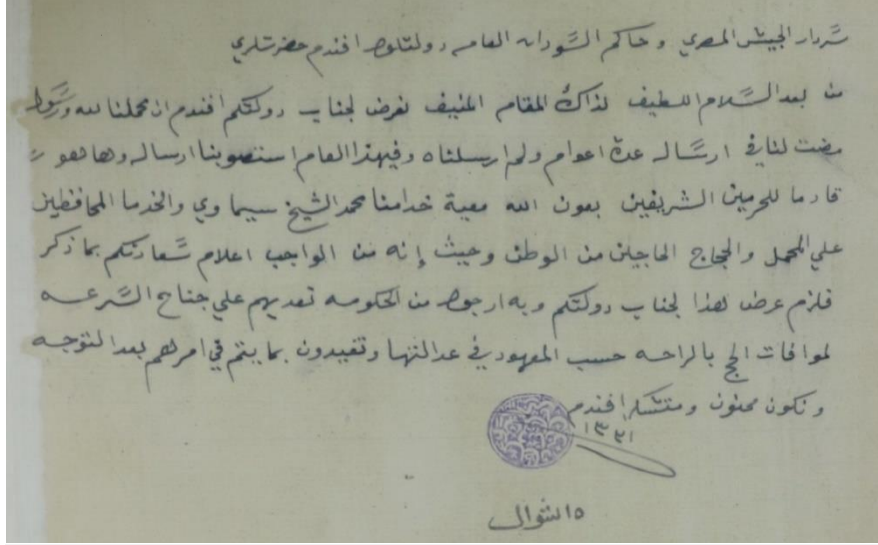 سردار الجيش المصري وحاكم السودان العام دولتلو افندم حضرتلري
من بعد السلام اللطيف لذاك المقام المنيف نعرض لجناب دولتكم افندم ان محملنا لله ورسوله
مضت لنا في ارساله عدة اعوام ولم ارسلناه وفي هذا العام استصوبنا ارساله وها هو
قادما للحرمين الشريفين بعون الله معية خدامنا محمد الشيخ سيماوي والخدما المحافظين
علي المحمل والحجاج الحاجين من الوطن وحيث إنه من الواجب اعلام سعادتكم بما ذكر
فلزم عرض هذا لجناب دولتكم وبه ارجو من الحكومه تعديهم علي جناح السرعه
لموافات الحج بالراحه حسب المعهود في عدالتها وتفيدون بما يتم في امرهم بعد التوجه
ونكون ممنون ومتشكر افندم
١٣٣١
١٥ شوال